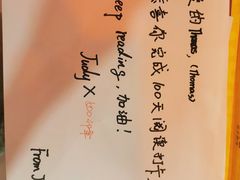 爱的 Thomas, (Thomas)
恭喜你完成100天阅读打卡
eep reading, 加油!
Judy X
From J